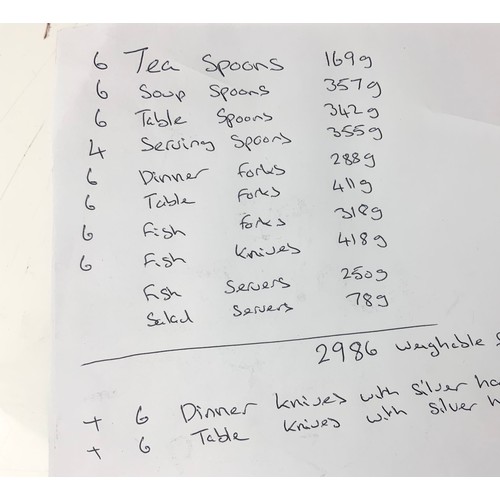 6 Tea Spoons 169g
6 Soup Spoons 357g
6 Table Spoons 342g
4 Serving Spoons 355g
6 Dinner forks 288g
6 Table forks 411g
6 Fish forks 318g
6 Fish knives 418g
Fish Servers 250g
Salad Servers 78g
2986 weighable
+ 6 Dinner knives with silver
+ 6 Table knives with silver